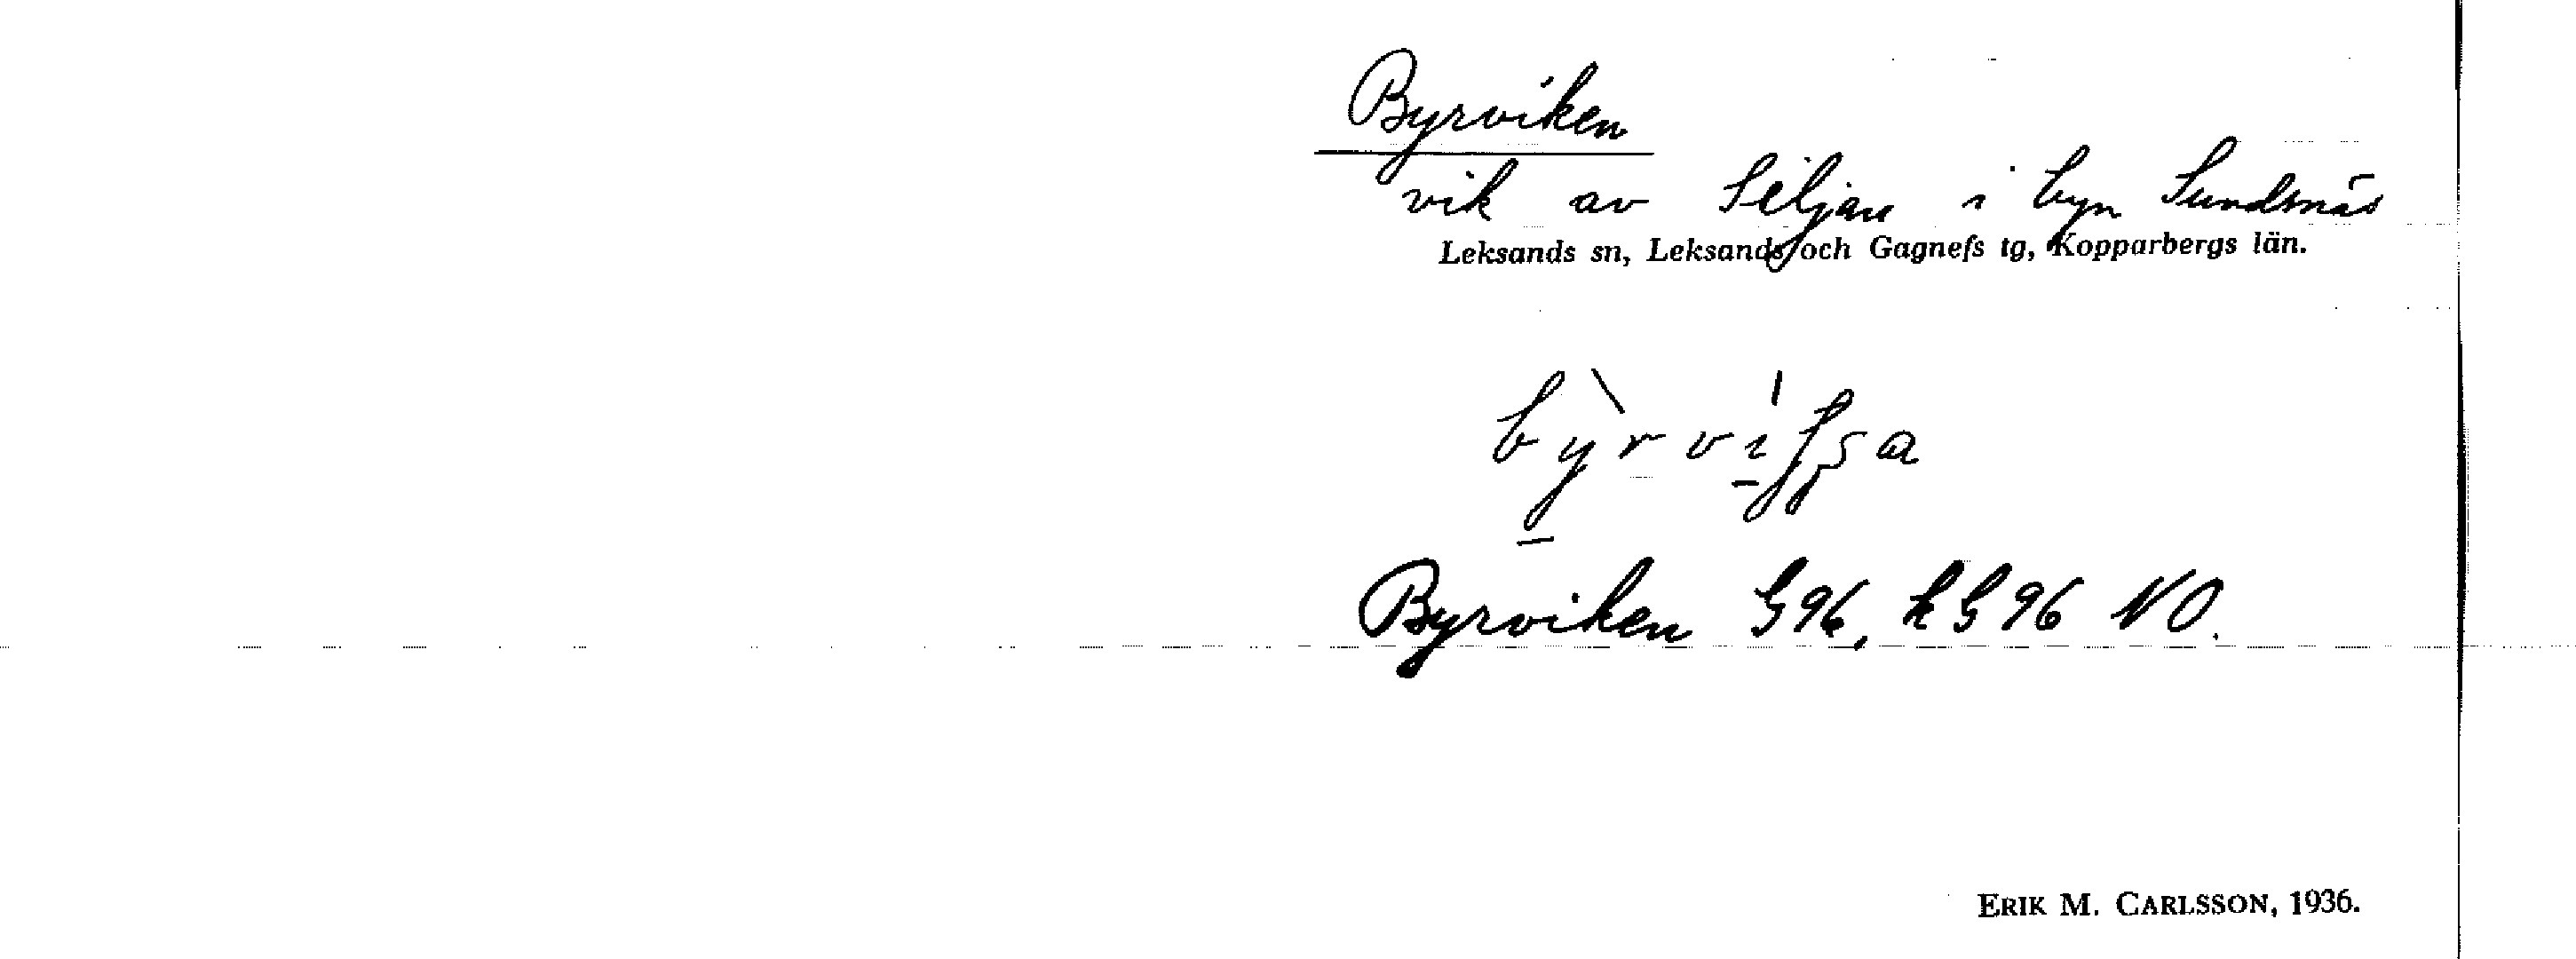 Byrviken
vik av Siljan i byn Sundsnäs
Leksands sn, Leksands och Gagnefs tg, Kopparbergs län.
Byrviken G96, kG96 NO.
ERIK M. CARLSSON, 1936.